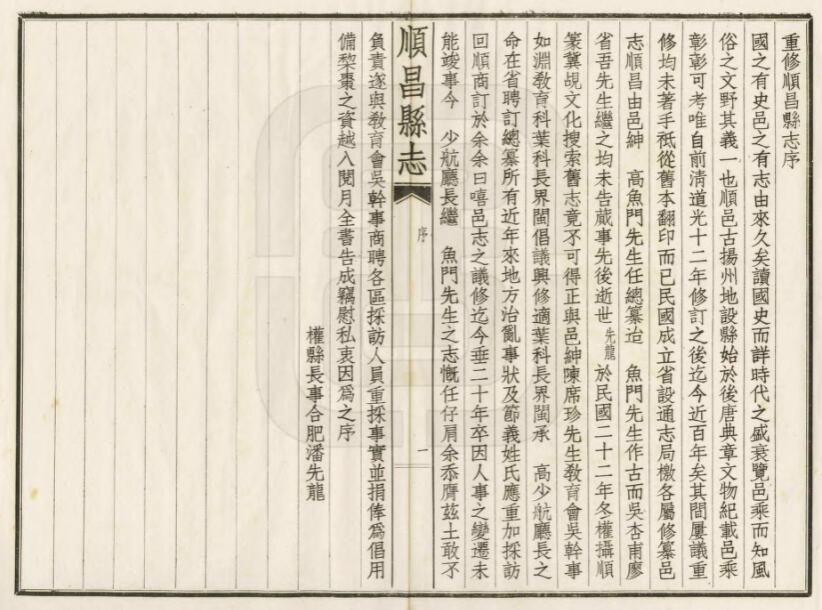 重修順昌縣志序
國之有史邑之有志由來久矣讀國史而詳時代之盛衰覽邑乘而知風
俗之文野其義一也順邑古揚州地設縣始於後唐典章文物紀載邑乘
彰彰可考唯自前清道光十二年修訂之後迄今近百年矣其間屢議重
修均未著手祇從舊本翻印而已民國成立省設通志局檄各屬修纂邑
志順昌由邑紳　高魚門先生任總纂迨　魚門先生作古而吳杏甫廖
省吾先生繼之均未告蕆事先後逝世先龍於民國二十二年冬權攝順
篆冀覘文化搜索舊志竟不可得正與邑紳陳席珍先生教育會吳幹事
如淵教育科葉科長界閩倡議興修適葉科長界閩承　高少航廳長之
命在省聘訂總纂所有近年來地方治亂事狀及節義姓氏應重加採訪
回順商訂於余余曰嘻邑志之議修迄今垂二十年卒因人事之變遷未
能竣事今　少航廳長繼　魚門先生之志慨任仔肩余忝膺茲土敢不
順昌縣志
序
一
負責遂與教育會吳幹事商聘各區採訪人員重採事實並捐俸爲倡用
備棃棗之資越入閱月全書告成竊慰私衷因爲之序
權縣長事合肥潘先龍